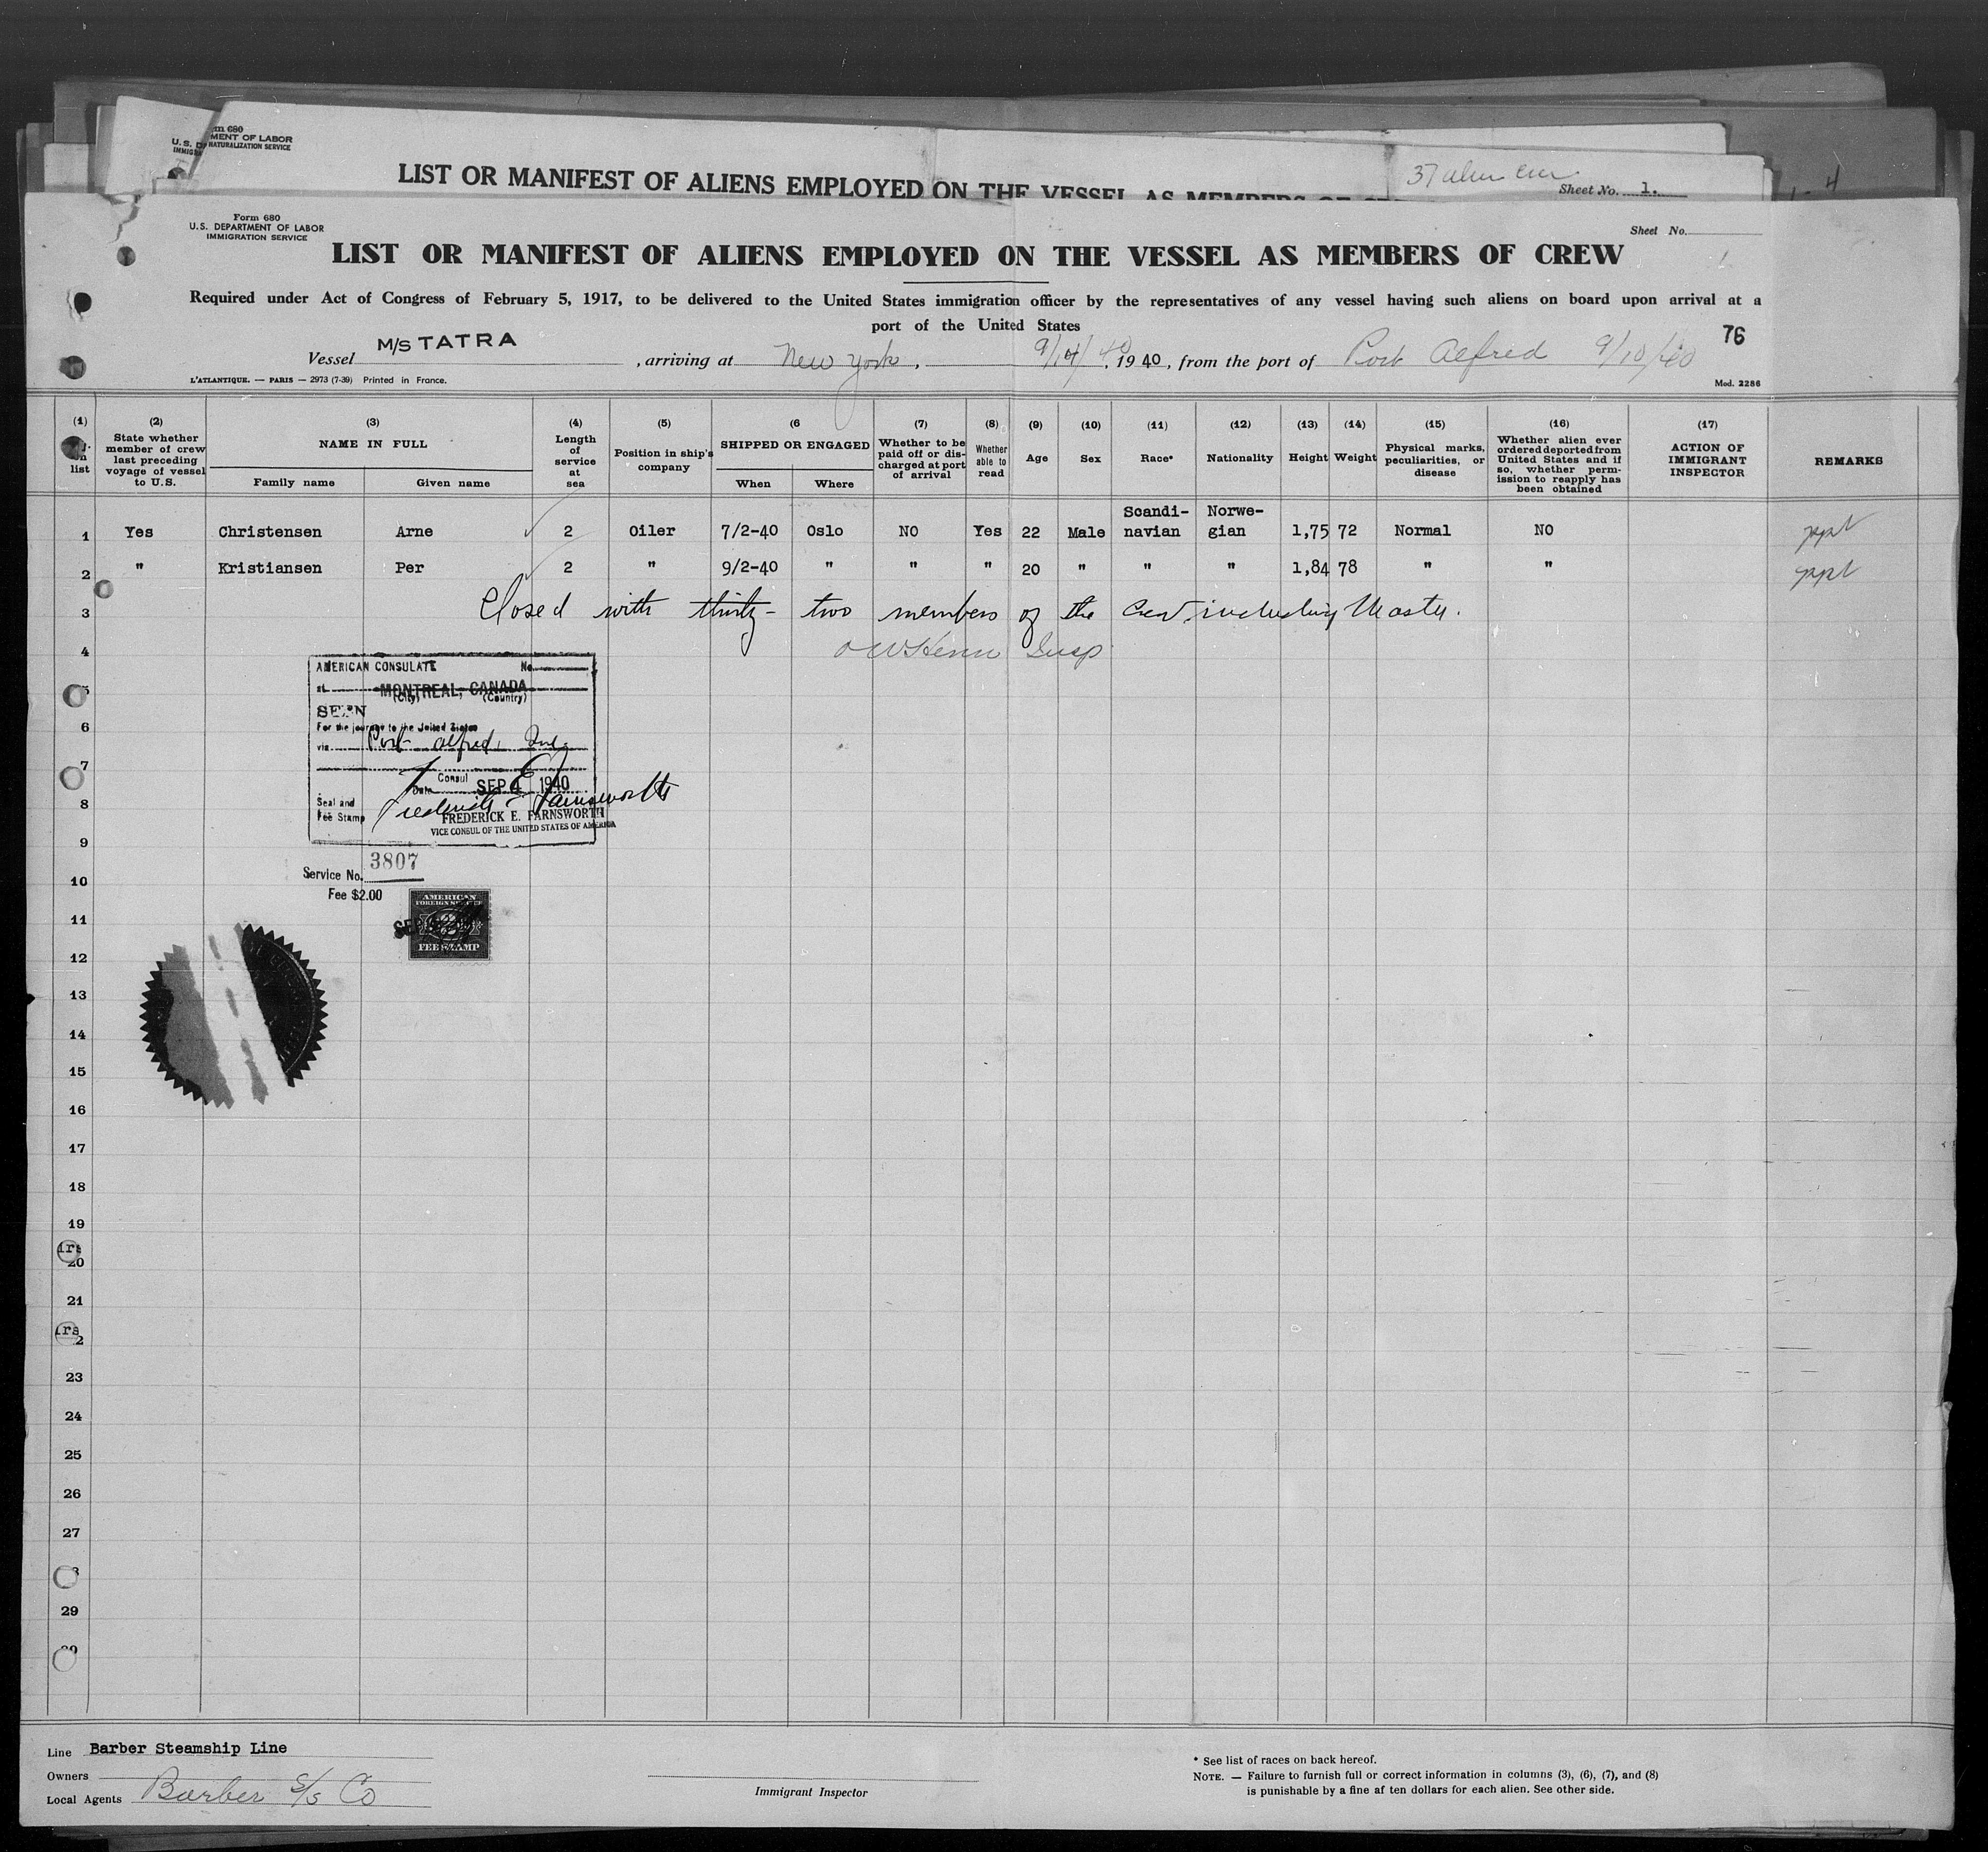 Form 680
U.S. DEPARTMENT OF LABOR
NATURALIZATION SERVICE
LIST OR MANIFEST OF ALIENS EMPLOYED ON THE VESSEL AS MEMBERS
Sheet No. 1.
Form 680
U.S. DEPARTMENT OF LABOR
IMMIGRATION SERVICE
Sheet No.
LIST OR MANIFEST OF ALIENS EMPLOYED ON THE VESSEL AS MEMBERS OF CREW
Required under Act of Congress of February 5, 1917, to be delivered to the United States immigration officer by the representatives of any vessel having such aliens on board upon arrival at a
port of the United States
76
Vessel M/S TATRA, arriving at New York, 9/14/40, 1940, from the port of Port Alfred 9/10/40
L'ATLANTIQUE. — PARIS — 2973 (7-39) Printed in France.
Mod. 2286
(1) list
(2) State whether member of crew last preceding voyage of vessel to U.S.
(3) NAME IN FULL Family name Given name
(4) Length of service at sea
(5) Position in ship's company
(6 SHIPPED OR ENGAGED When Where
(7) Whether to be paid off or discharged at port of arrival
(8) Whether able to read
(9) Age
(10) Sex
(11) Race*
(12) Nationality
(13) Height
(14) Weight
(15) Physical marks, peculiarities, or disease
(16) Whether alien ever ordered deported from United States and if so, whether permission to reapply has been obtained
(17) ACTION OF IMMIGRANT INSPECTOR
REMARKS
1 Yes Christensen Arne 2 Oiler 7/2-40 Oslo NO Yes 22 Male Scandinavian Norwegian 1,75 72 Normal NO ppt
2 " Kristiansen Per 2 " 9/2-40 " " " 20 " " " 1,84 78 " " ppt
3 Closed with thirty-two members of the crew including Master.
4 Insp
AMERICAN CONSULATE No.
at MONTREAL, CANADA
(City) (Country)
SEEN
For the journey to the United States
via Port Alfred, Que.
Consul
Date SEP 4 1940
Frederick E. Farnsworth
Seal and
Fee Stamp
FREDERICK E. FARNSWORTH
VICE CONSUL OF THE UNITED STATES OF AMERICA
Service No. 3807
Fee $2.00
AMERICAN
FOREIGN SERVICE
FEE STAMP
6
7
8
9
10
11
12
13
14
15
16
17
18
19
20
21
23
24
25
26
27
29
Line Barber Steamship Line
Owners
Local Agents Barber S/S Co
Immigrant Inspector
* See list of races on back hereof.
NOTE. — Failure to furnish full or correct information in columns (3), (6), (7), and (8)
is punishable by a fine af ten dollars for each alien. See other side.